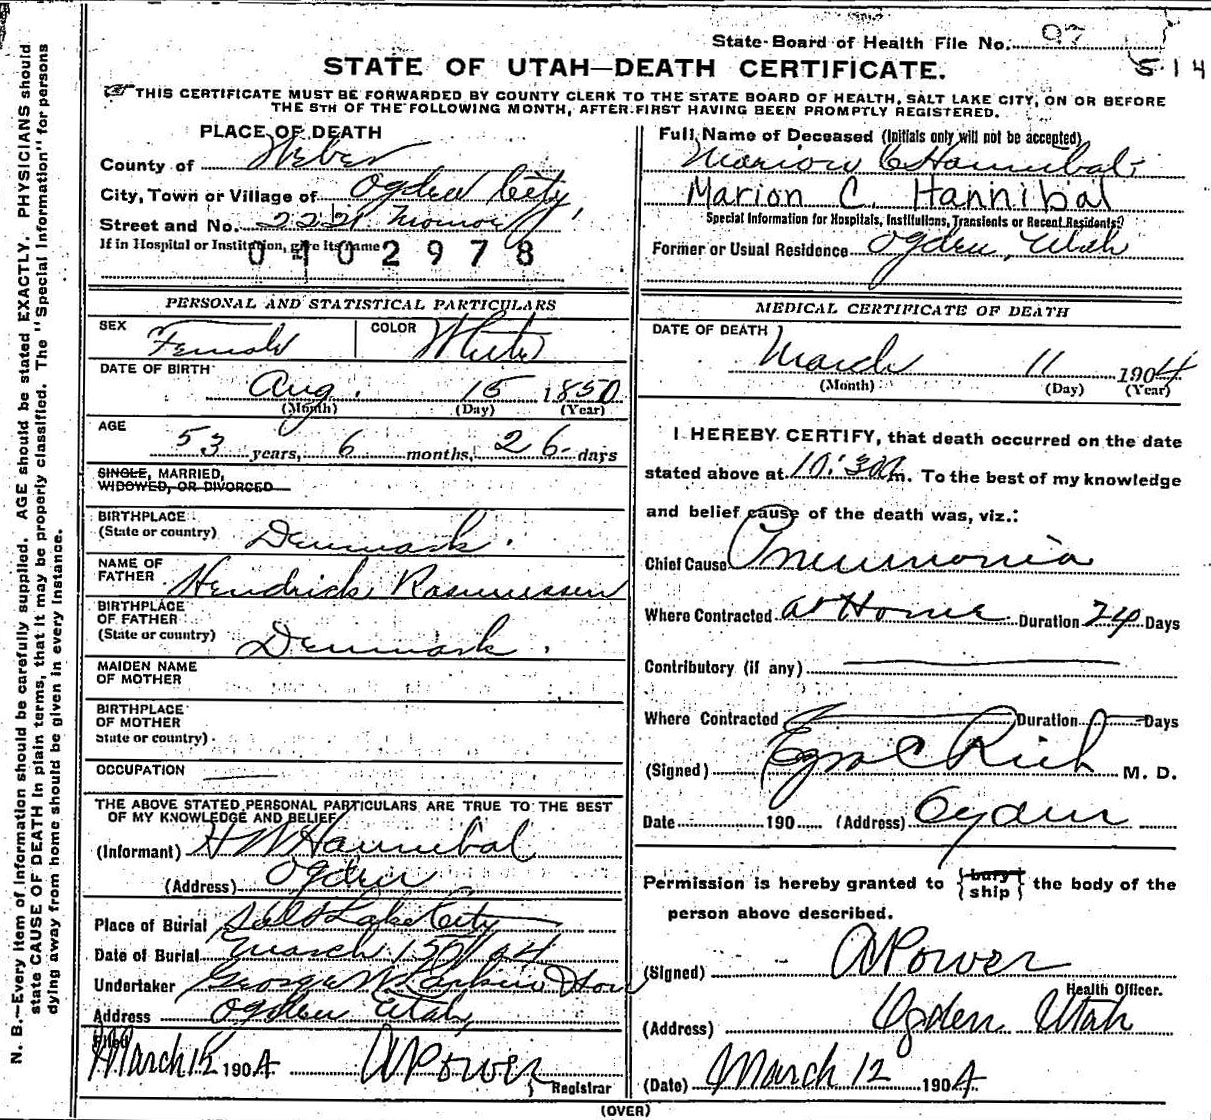 State Board of Health File No. 97
514
STATE OF UTAH—DEATH CERTIFICATE.
THIS CERTIFICATE MUST BE FORWARDED BY COUNTY CLERK TO THE STATE BOARD OF HEALTH, SALT LAKE CITY, ON OR BEFORE
THE 5TH OF THE FOLLOWING MONTH, AFTER FIRST HAVING BEEN PROMPTLY REGISTERED.
N. B.—Every item of information should be carefully supplied. AGE should be stated EXACTLY. PHYSICIANS should
state CAUSE OF DEATH in plain terms, that it may be properly classified. The "Special Information" for persons
dying away from home should be given in every instance.
PLACE OF DEATH
County of Weber
City, Town or Village of Ogden City
Street and No. 2221 Monroe
If in Hospital or Institution, give its name
0102978
PERSONAL AND STATISTICAL PARTICULARS
SEX Female COLOR White
DATE OF BIRTH
Aug. 15 1850
(Month) (Day) (Year)
AGE
53 years, 6 months, 26 days
SINGLE, MARRIED,
WIDOWED, OR DIVORCED
BIRTHPLACE
(State or country) Denmark.
NAME OF
FATHER Hendrick Rasmussen
BIRTHPLACE
OF FATHER
(State or country) Denmark.
MAIDEN NAME
OF MOTHER
BIRTHPLACE
OF MOTHER
State or country)
OCCUPATION
THE ABOVE STATED PERSONAL PARTICULARS ARE TRUE TO THE BEST
OF MY KNOWLEDGE AND BELIEF
(Informant) H W Hannibal
(Address) Ogden
Place of Burial Salt Lake City
Date of Burial March 15 / 04
Undertaker George W Larkin & Son
Address Ogden Utah
Filed
March 12 1904. A Power Registrar
Full Name of Deceased (Initials only will not be accepted)
Marion C Hannibal
Marion C. Hannibal
Special Information for Hospitals, Institutions, Transients or Recent Residents?
Former or Usual Residence Ogden, Utah
MEDICAL CERTIFICATE OF DEATH
DATE OF DEATH
March 11 1904
(Month) (Day) (Year)
I HEREBY CERTIFY, that death occurred on the date
stated above at 10:30 a m. To the best of my knowledge
and belief cause of the death was, viz.:
Chief Cause Pneumonia
Where Contracted at Home Duration 24 Days
Contributory (if any)
Where Contracted Duration Days
(Signed) Ezra C Rich M. D.
Date 190 (Address) Ogden
Permission is hereby granted to {bury ship} the body of the
person above described.
(Signed) A Power
Health Officer.
(Address) Ogden Utah
(Date) March 12 1904.
(OVER)